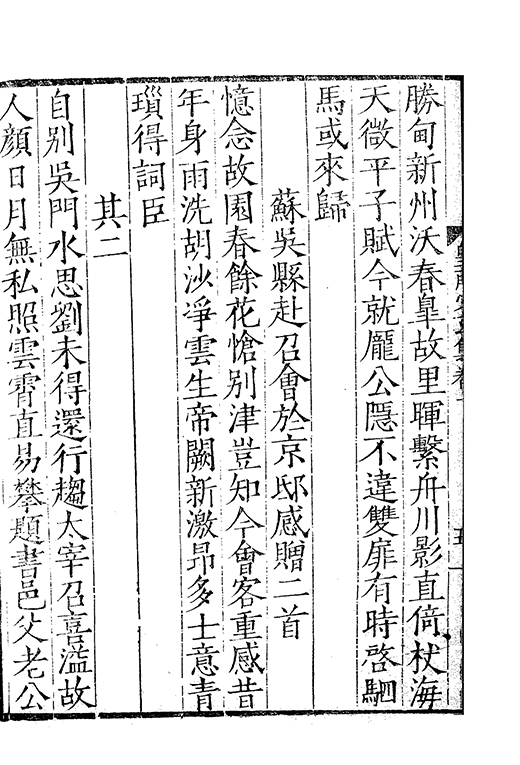 勝甸新州沃春臯故里暉繫舟川影直倚杖海
天微平子賦今就龐公隱不違雙扉有時啓駟
馬或來歸
蘇吳縣赴召會於京邸感贈二首
憶念故園春餘花愴別津豈知今會客重感昔
年身雨洗胡沙凈雲生帝闕新激昂多士意青
瑣得詞臣
其二
自別吳門水思劉未得還行趨太宰召喜溢故
人顔日月無私照雲霄直易攀題書邑父老公